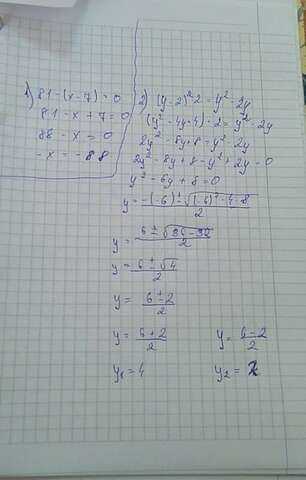 1) 81-(x-7)=0
81-x+7=0
88-x=0
-x=-88
2) (y-2)²·2=y²-2y
(y²-4y+4)·2=y²-2y
2y²-8y+8=y²-2y
2y²-8y+8-y²+2y=0
y²-6y+8=0
y=\frac{-(-6)±√((-6)²-4·8)}{2}
y=\frac{6±√(36-32)}{2}
y=\frac{6±√4}{2}
y=\frac{6±2}{2}
y=\frac{6+2}{2} y=\frac{6-2}{2}
y₁=4 y₂=2